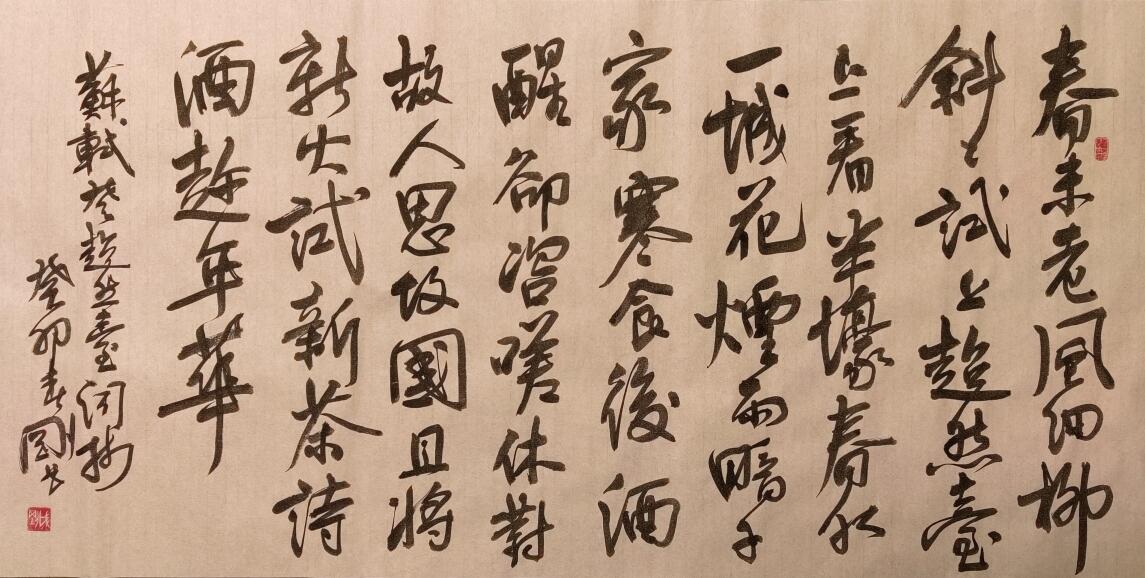 春未老風細柳
斜々試上超然臺
上看半壕春水
一城花煙雨暗千
家寒食後酒
醒卻咨嗟休對
故人思故國且將
新火試新茶詩
酒趁年華
蘇軾登超然臺词抄
癸卯春剛书